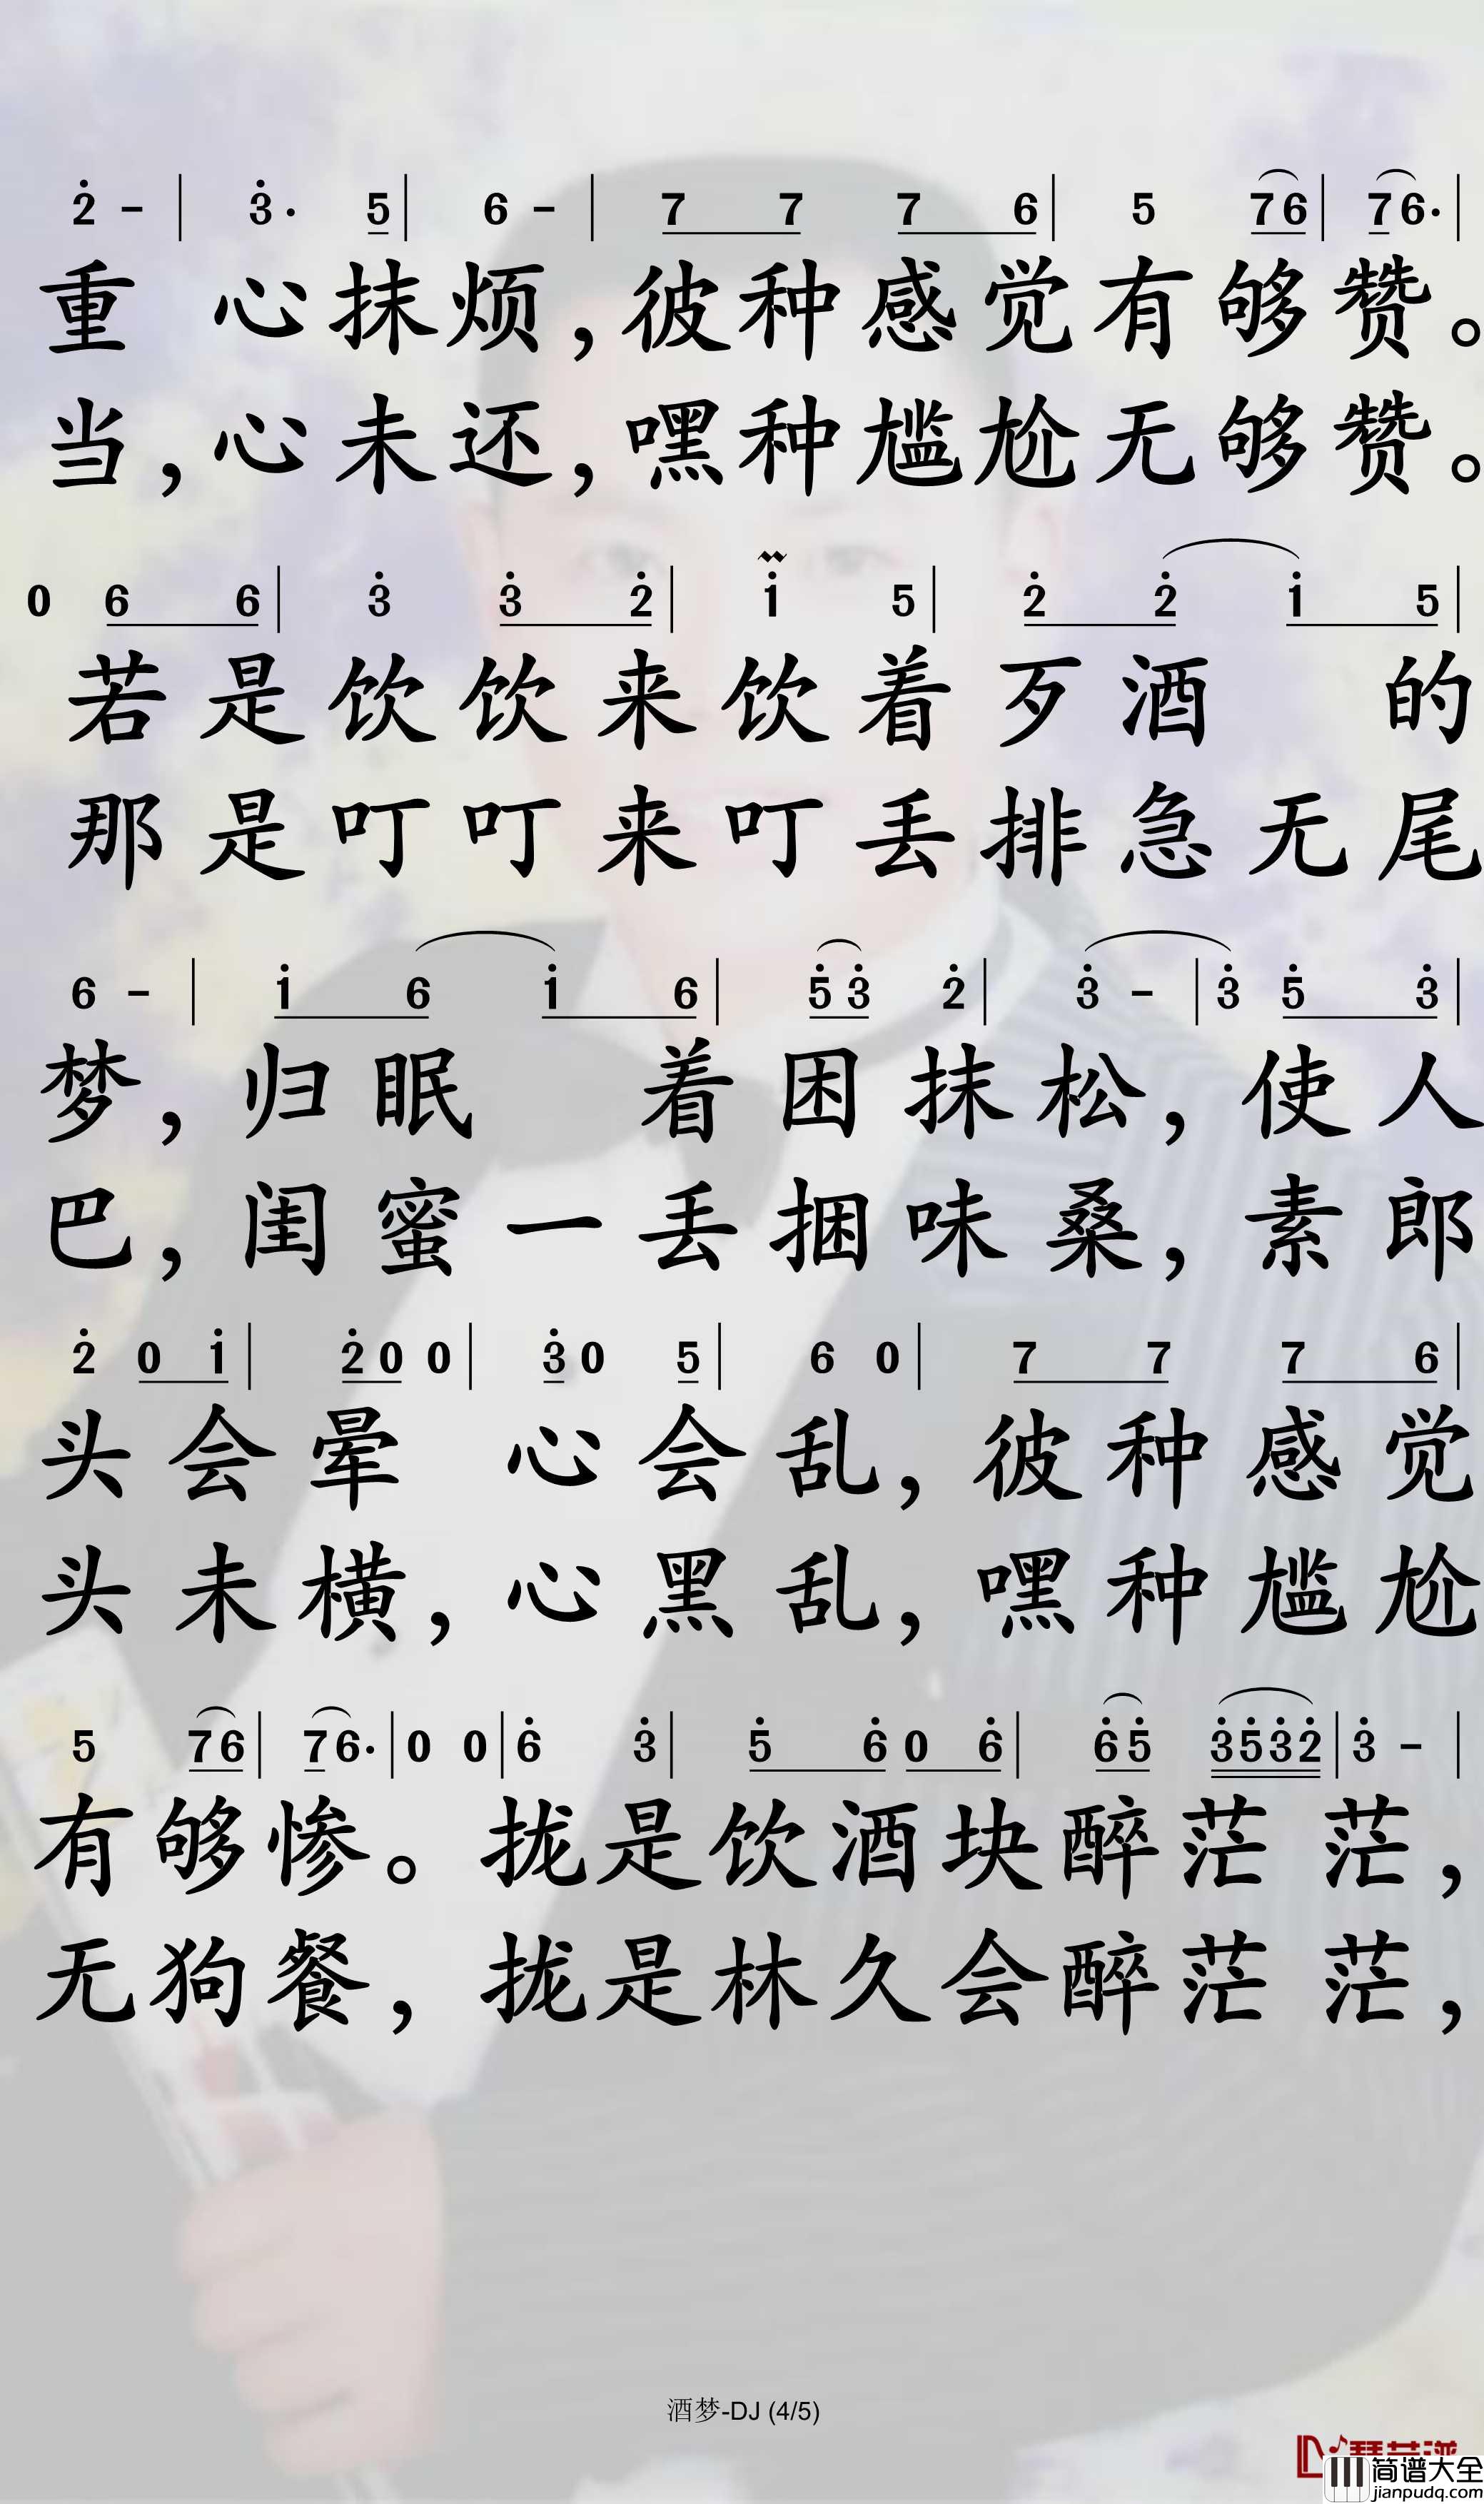 2̇ - | 3̇· 5 | 6 - | 7 7 7 6 | 5 76 | 76· |
重 心抹烦，彼种感觉有够赞。
当，心未还，嘿种尴尬无够赞。
0 6 6 | 3̇ 3̇ 2̇ | 1̇ 5 | 2̇ 2̇ 1̇ 5 |
若是饮饮来饮着歹酒 的
那是叮叮来叮丢排急无尾
6 - | 1̇ 6 1̇ 6 | 5̇3̇ 2̇ | 3̇ - | 3̇ 5̇ 3̇ |
梦，归眠 着困抹松，使人
巴，闺蜜一丢捆味桑，素郎
2̇ 0 1̇ | 2̇0 0 | 3̇0 5 | 6 0 | 7 7 7 6 |
头会晕 心会乱，彼种感觉
头未横，心黑乱，嘿种尴尬
5 76 | 76· | 0 0 | 6̇ 3̇ | 5̇ 6̇ 0 6̇ | 6̇5̇ 3̇5̇3̇2̇ | 3̇ - |
有够惨。拢是饮酒块醉茫茫，
无狗餐，拢是林久会醉茫茫，
酒梦-DJ (4/5)
简谱大全
jianpudq.com